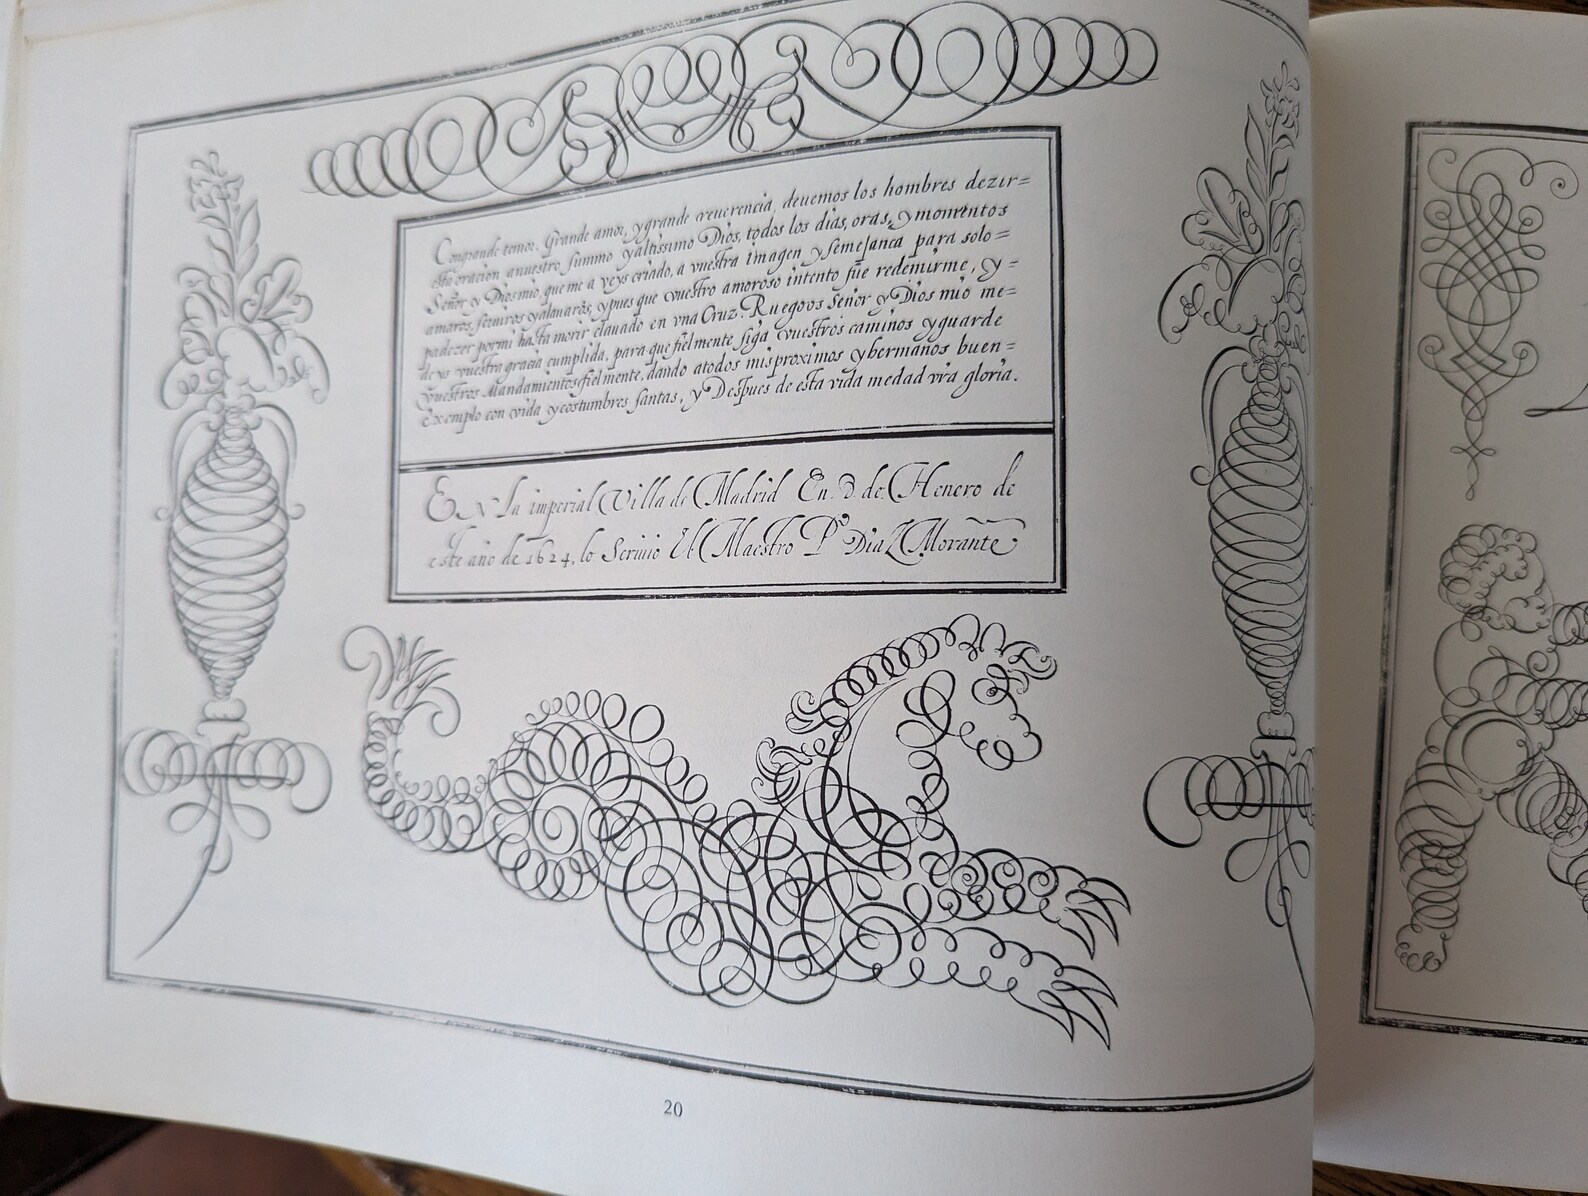 Congrande temor. Grande amor, ygrande reuerencia, deuemos los hombres dezir=
esta oracion anuestro summo yaltissimo Dios, todos los dias, oras, ymomentos
Señor y Diosmio, que me a veys criado, a vuestra imagen y semejança para solo=
amaros, seruiros yalauaros, ypues que vuestro amoroso intento fue redemirme, y=
padezer pormi hasta morir clauado en vna Cruz. Ruegoos Señor y Dios mio me=
deys vuestra gracia cumplida, para que fielmente siga vuestros caminos yguarde
vuestros Mandamientos fielmente, dando atodos misproximos yhermanos buen=
Exemplo con vida ycostumbres santas, y Despues de esta vida medad vra gloria.
EN la imperial Villa de Madrid En. 2 de Henero de
este año de 1624, lo Scriuio El Maestro Pº Diaz Morante
20